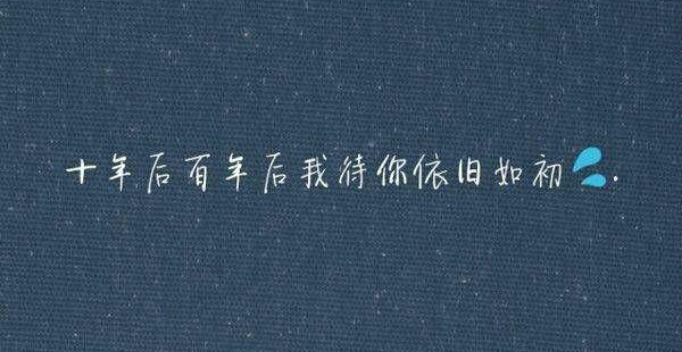 十年后百年后我待你依旧如初💦.